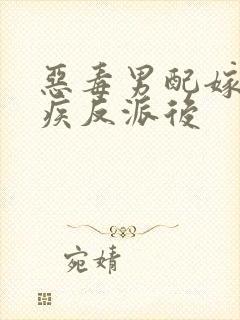 惡毒男配嫁
疾反派後
宛婧